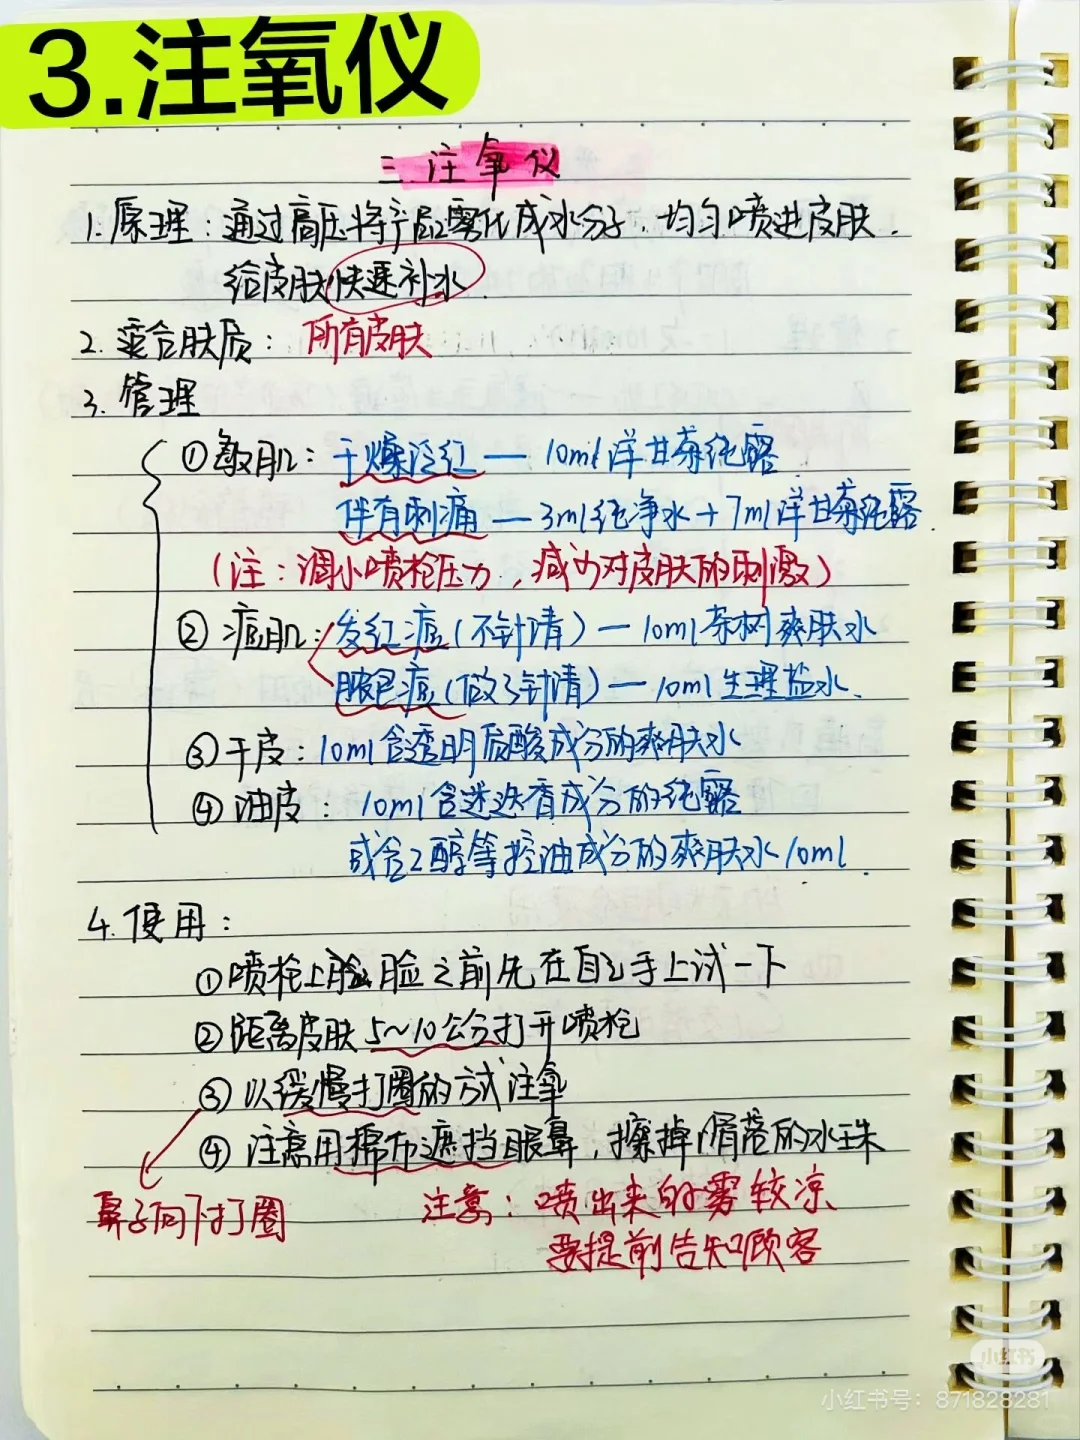 3.注氧仪
三 注氧仪
1.原理：通过高压将产品雾化成水分子，均匀喷进皮肤，
给皮肤快速补水.
2.适合肤质：所有皮肤
3.管理
①敏肌：干燥泛红—10ml洋甘菊纯露
伴有刺痛—3ml纯净水+7ml洋甘菊纯露.
(注：调小喷枪压力，减少对皮肤的刺激)
②痘肌：发红痘(不针清)—10ml茶树爽肤水
脓包痘(做了针清)—10ml生理盐水.
③干皮：10ml含透明质酸成分的爽肤水
④油皮：10ml含迷迭香成分的纯露
或含乙醇等控油成分的爽肤水10ml.
4.使用：
①喷枪上脸脸之前先在自己手上试一下
②距离皮肤5~10公分打开喷枪
③以缓慢打圈的方式注氧
④注意用棉布遮挡眼鼻，擦掉滑落的水珠
鼻子向下打圈
注意：喷出来的雾较凉
要提前告知顾客
小红书
小红书号：871828281